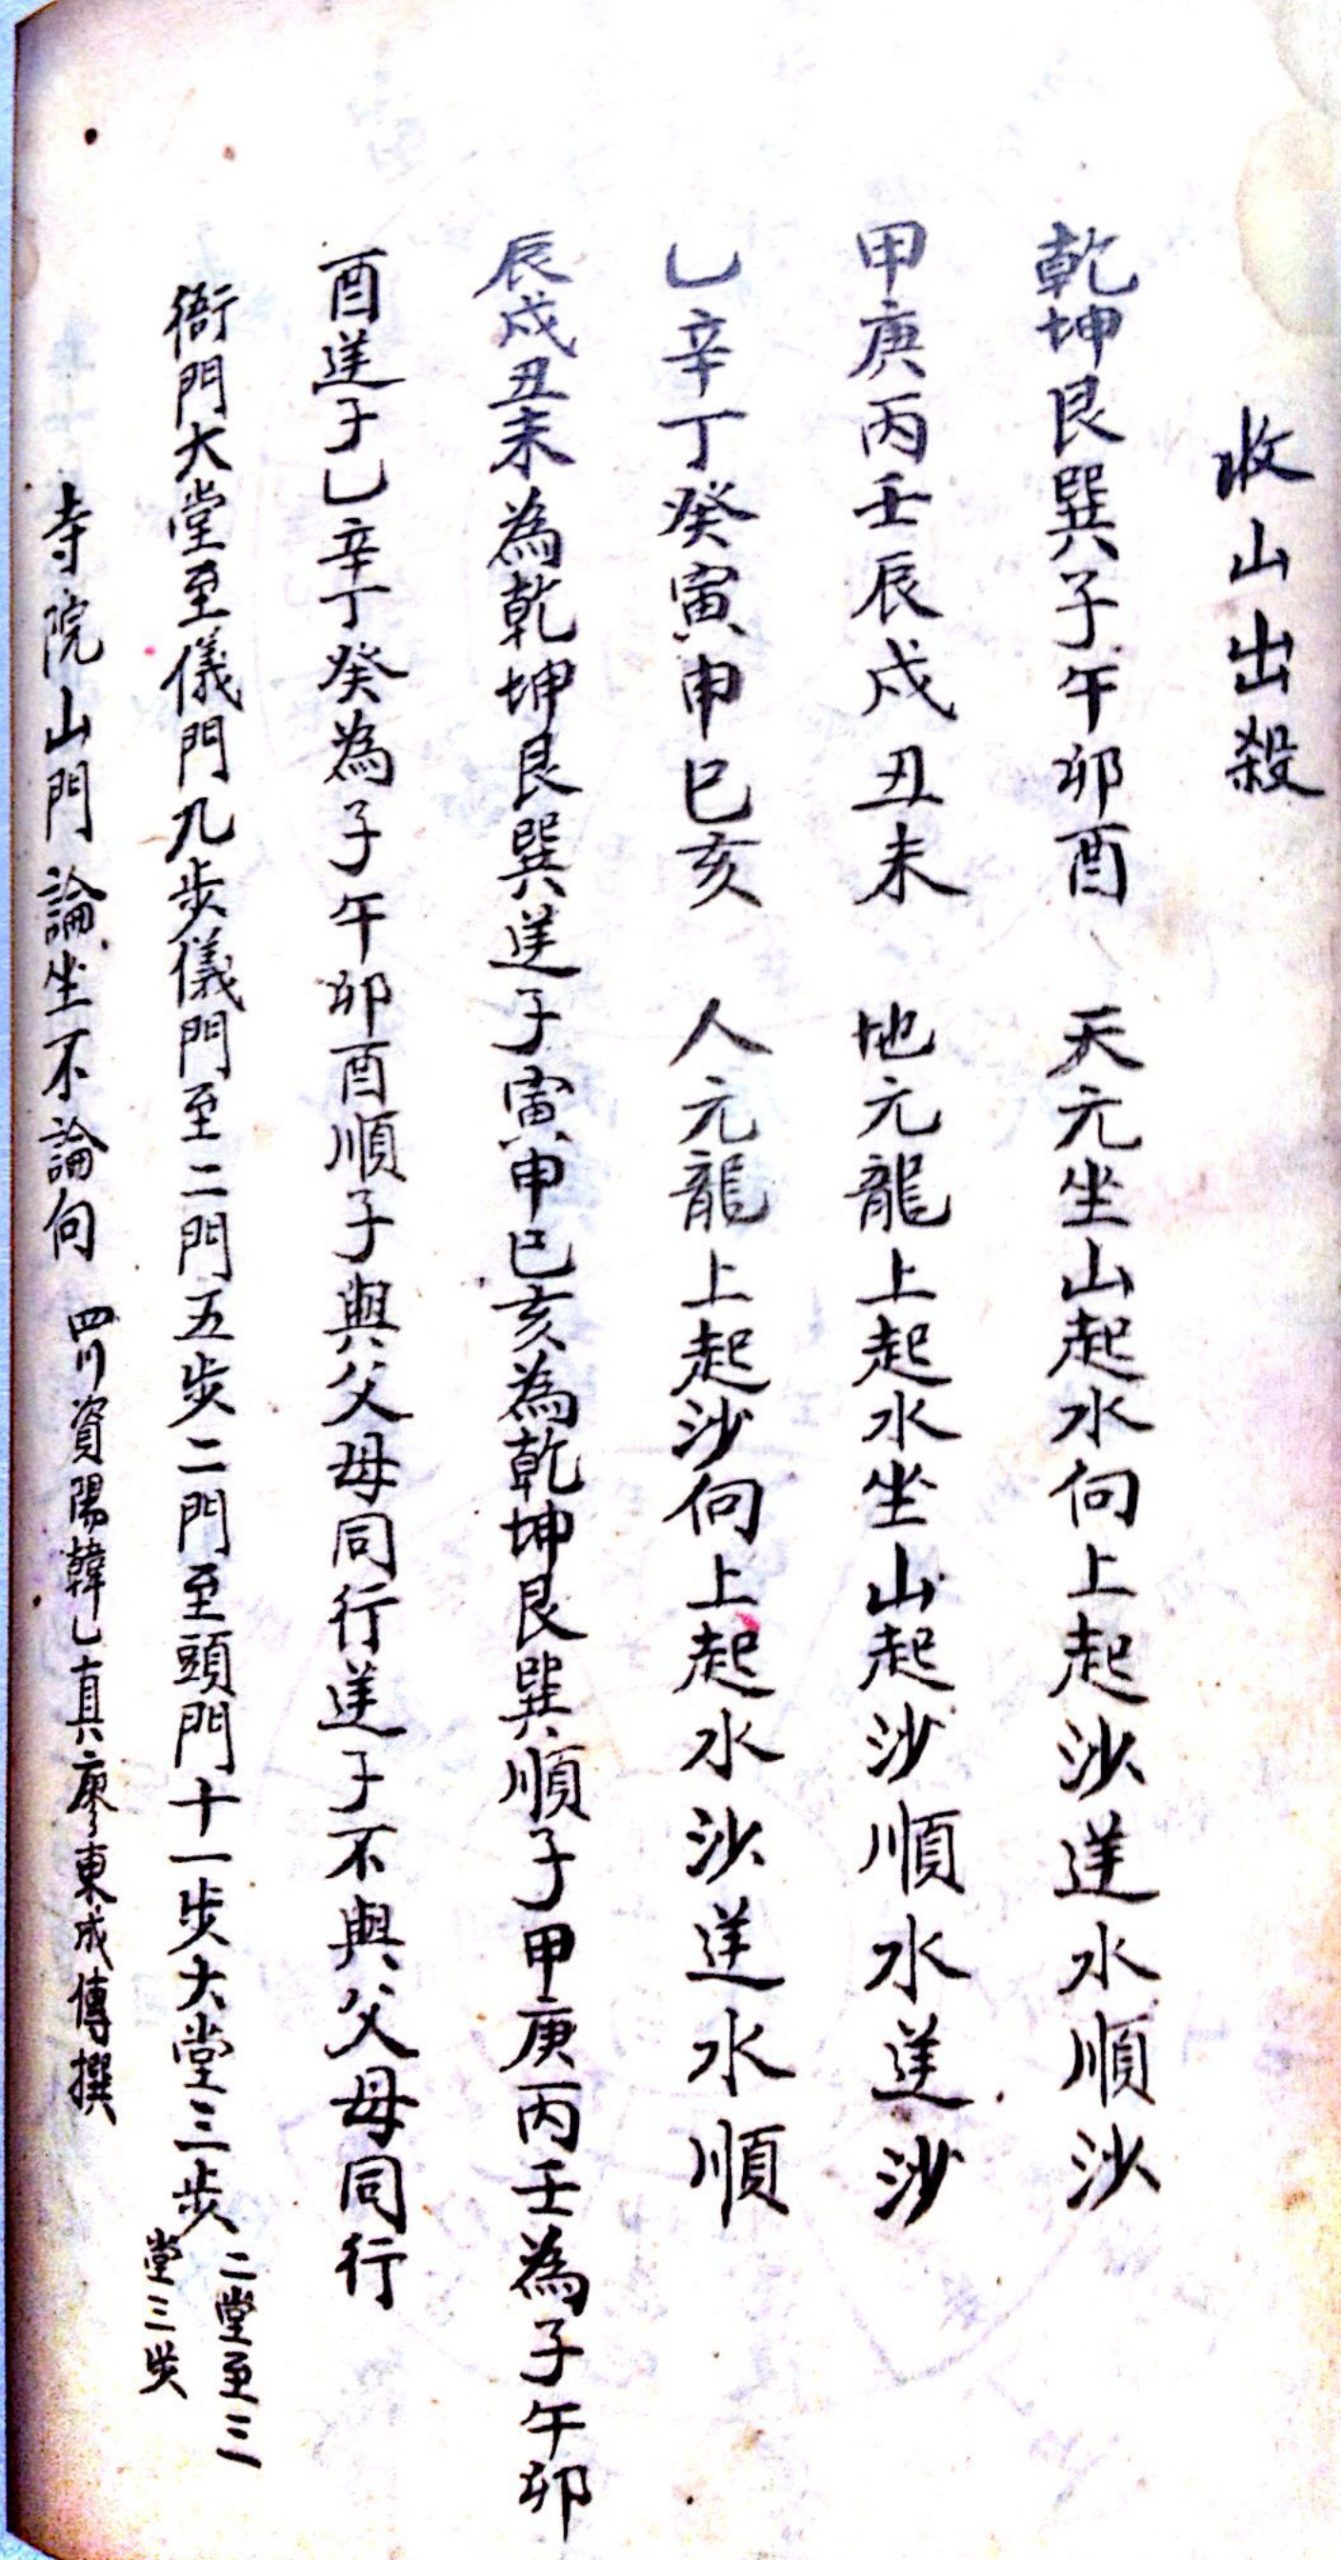 收山出殺
乾坤艮巽子午卯酉　天元坐山起水向上起沙逆水順沙
甲庚丙壬辰戌丑未　地元龍上起水坐山起沙順水逆沙
乙辛丁癸寅申巳亥　人元龍上起沙向上起水沙逆水順
辰戌丑未為乾坤艮巽逆子寅申巳亥為乾坤艮巽順子甲庚丙壬為子午卯
酉逆子乙辛丁癸為子午卯酉順子與父母同行逆子不與父母同行
衙門大堂至儀門九步儀門至二門五步二門至頭門十一步大堂三步
二堂至三
堂三步
寺院山門論坐不論向　四川資陽韓乙真廖東成傳撰